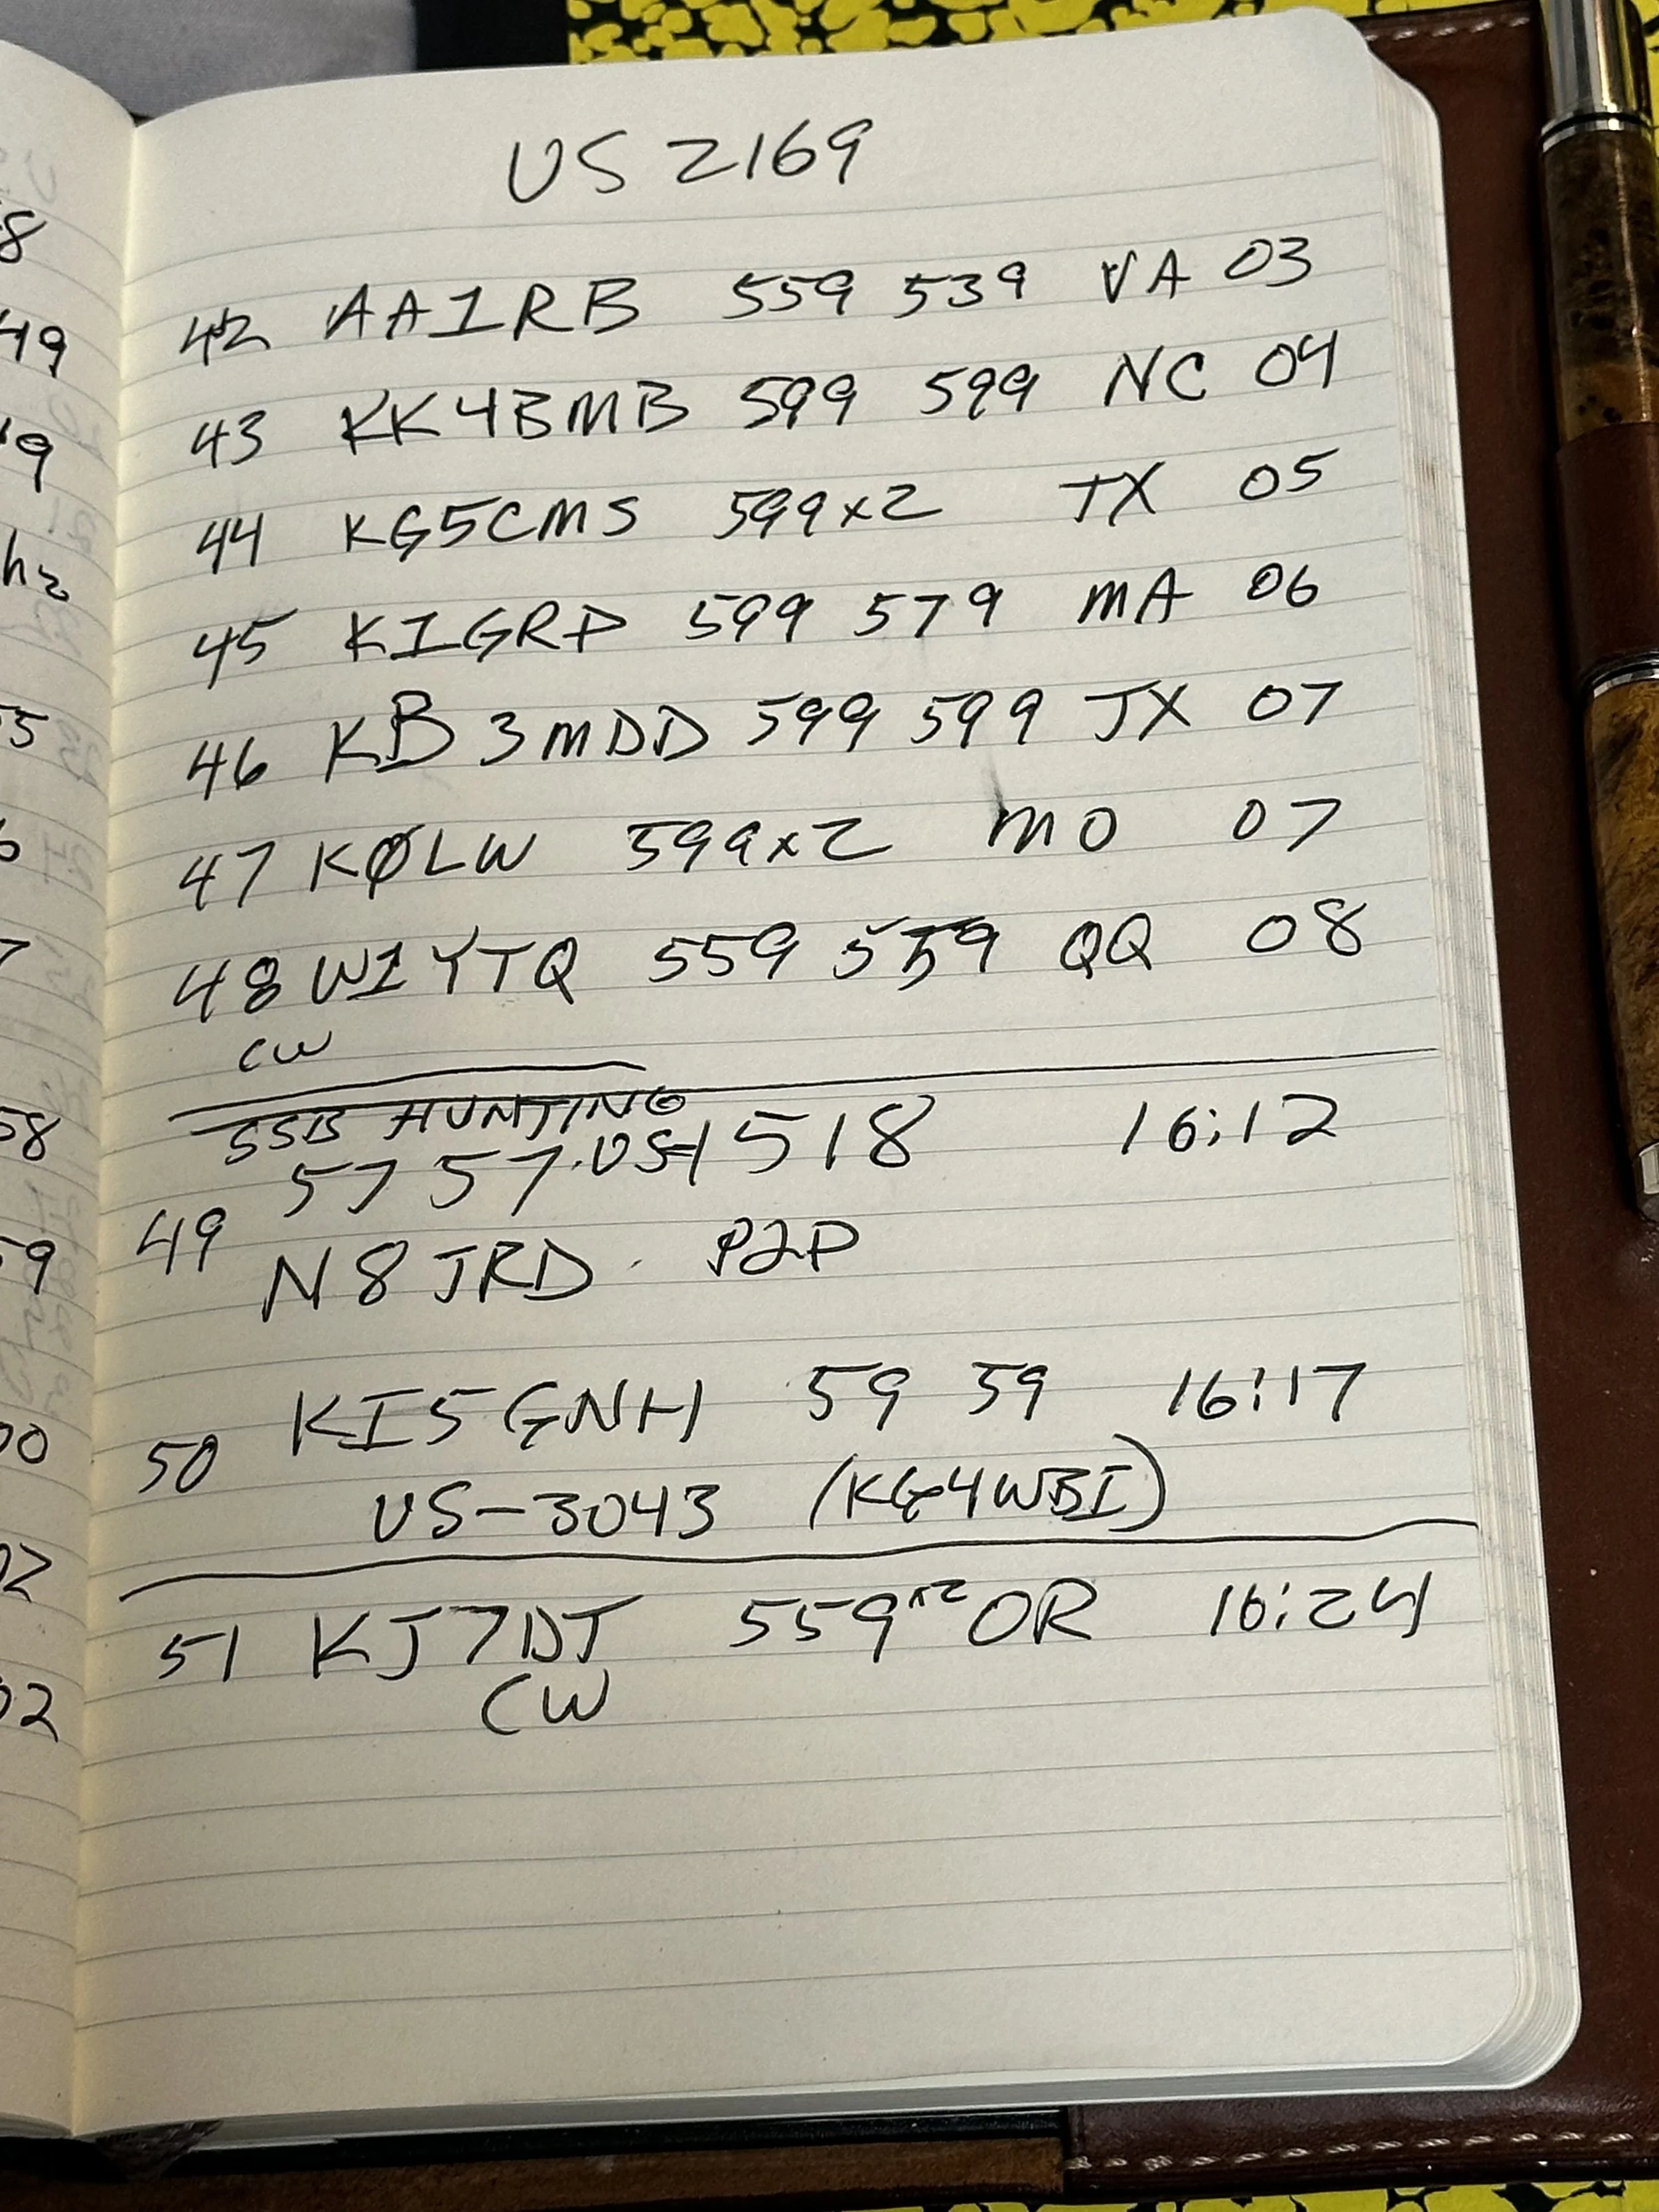 US 2169
42 AA1RB 559 539 VA 03
43 KK4BMB 599 599 NC 04
44 KG5CMS 599x2 TX 05
45 K1GRP 599 579 MA 06
46 KB3MDD 599 599 TX 07
47 KØLW 599x2 MO 07
48 W1YTQ 559 559 QQ 08
CW
SSB HUNTING
57 57 · US-1518 16:12
49
N8JRD · P2P
50 KI5GNH 59 59 16:17
US-3043 (KG4WBI)
51 KJ7DT 559x2 OR 16:24
CW